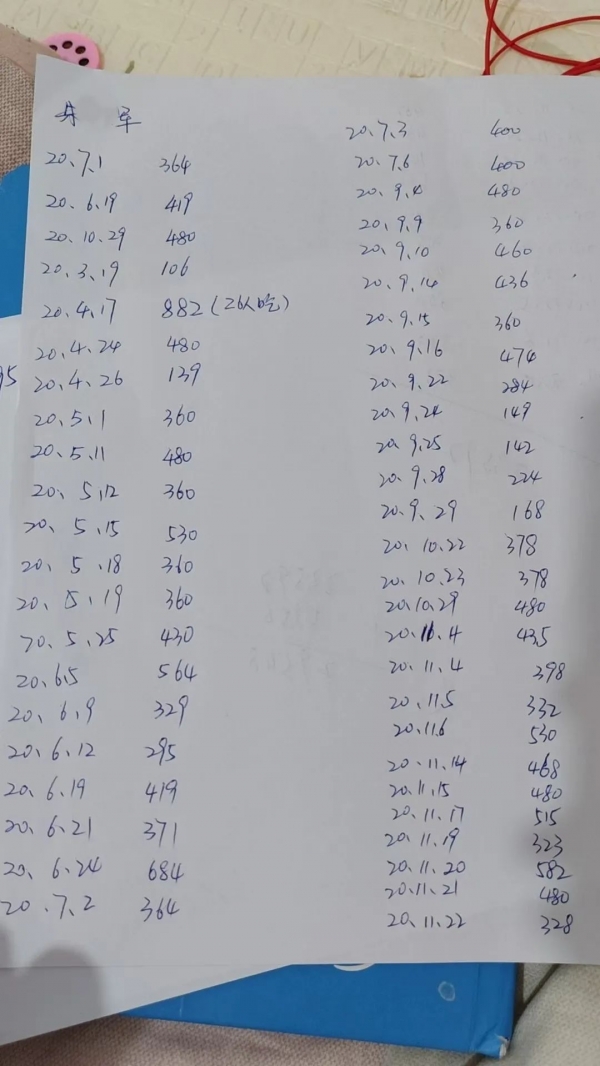 丹 军
20.7.1 364
20.6.19 419
20.10.29 480
20.3.19 106
20.4.17 882(2人吃)
20.4.24 480
20.4.26 139
20.5.1 360
20.5.11 480
20.5.12 360
20.5.15 530
20.5.18 360
20.5.19 360
20.5.25 430
20.6.5 564
20.6.9 329
20.6.12 295
20.6.19 419
20.6.21 371
20.6.24 684
20.7.2 364
20.7.3 400
20.7.6 400
20.9.4 480
20.9.9 360
20.9.10 460
20.9.14 436
20.9.15 360
20.9.16 474
20.9.22 284
20.9.24 149
20.9.25 142
20.9.28 224
20.9.29 168
20.10.22 378
20.10.23 378
20.10.29 480
20.11.4 435
20.11.4 398
20.11.5 332
20.11.6 530
20.11.14 468
20.11.15 480
20.11.17 515
20.11.19 323
20.11.20 582
20.11.21 480
20.11.22 328